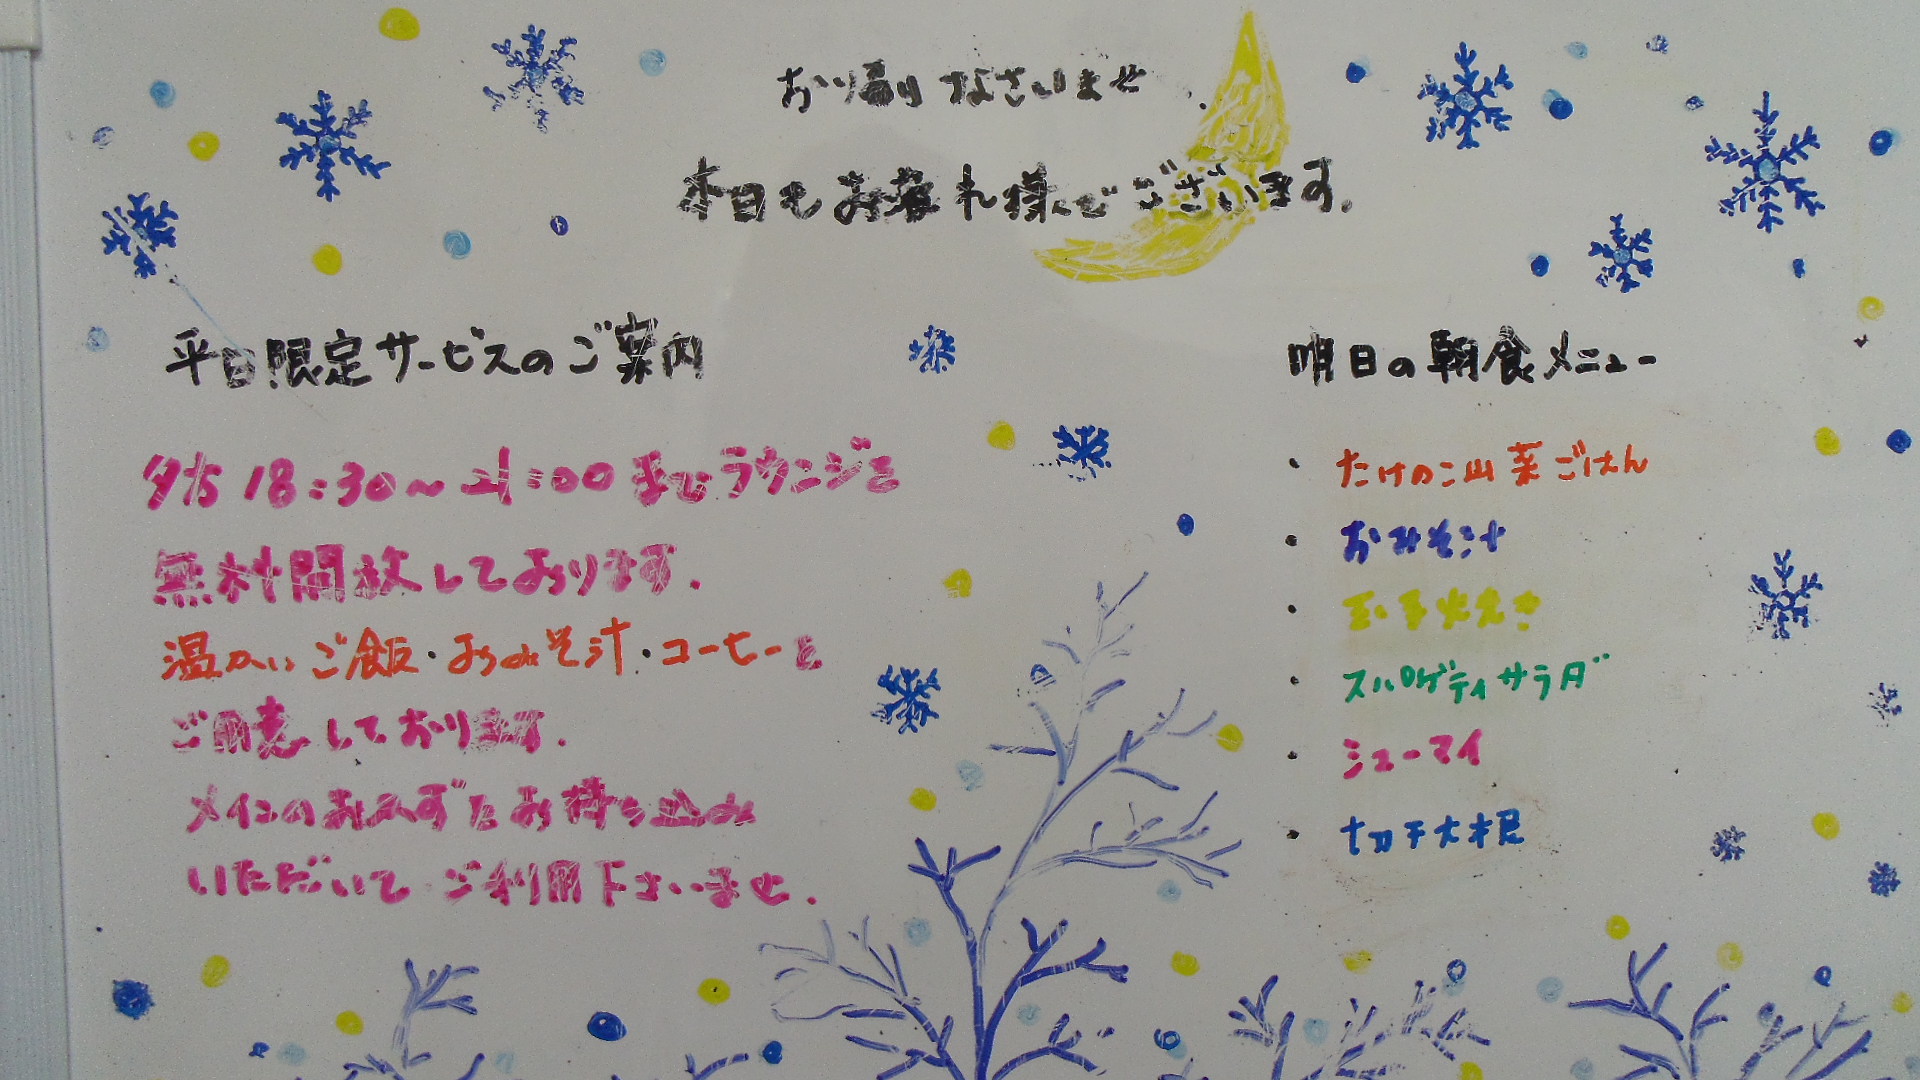 お帰りなさいませ
本日もお疲れ様でございます。
平日限定サービスのご案内
夕方18:30〜21:00までラウンジを
無料開放しております。
温かいご飯・おみそ汁・コーヒーを
ご用意しております。
メインのおかずをお持ち込み
いただいて、ご利用下さいませ。
明日の朝食メニュー
・たけのこ山菜ごはん
・おみそ汁
・玉子焼き
・スパゲティサラダ
・シューマイ
・切干大根